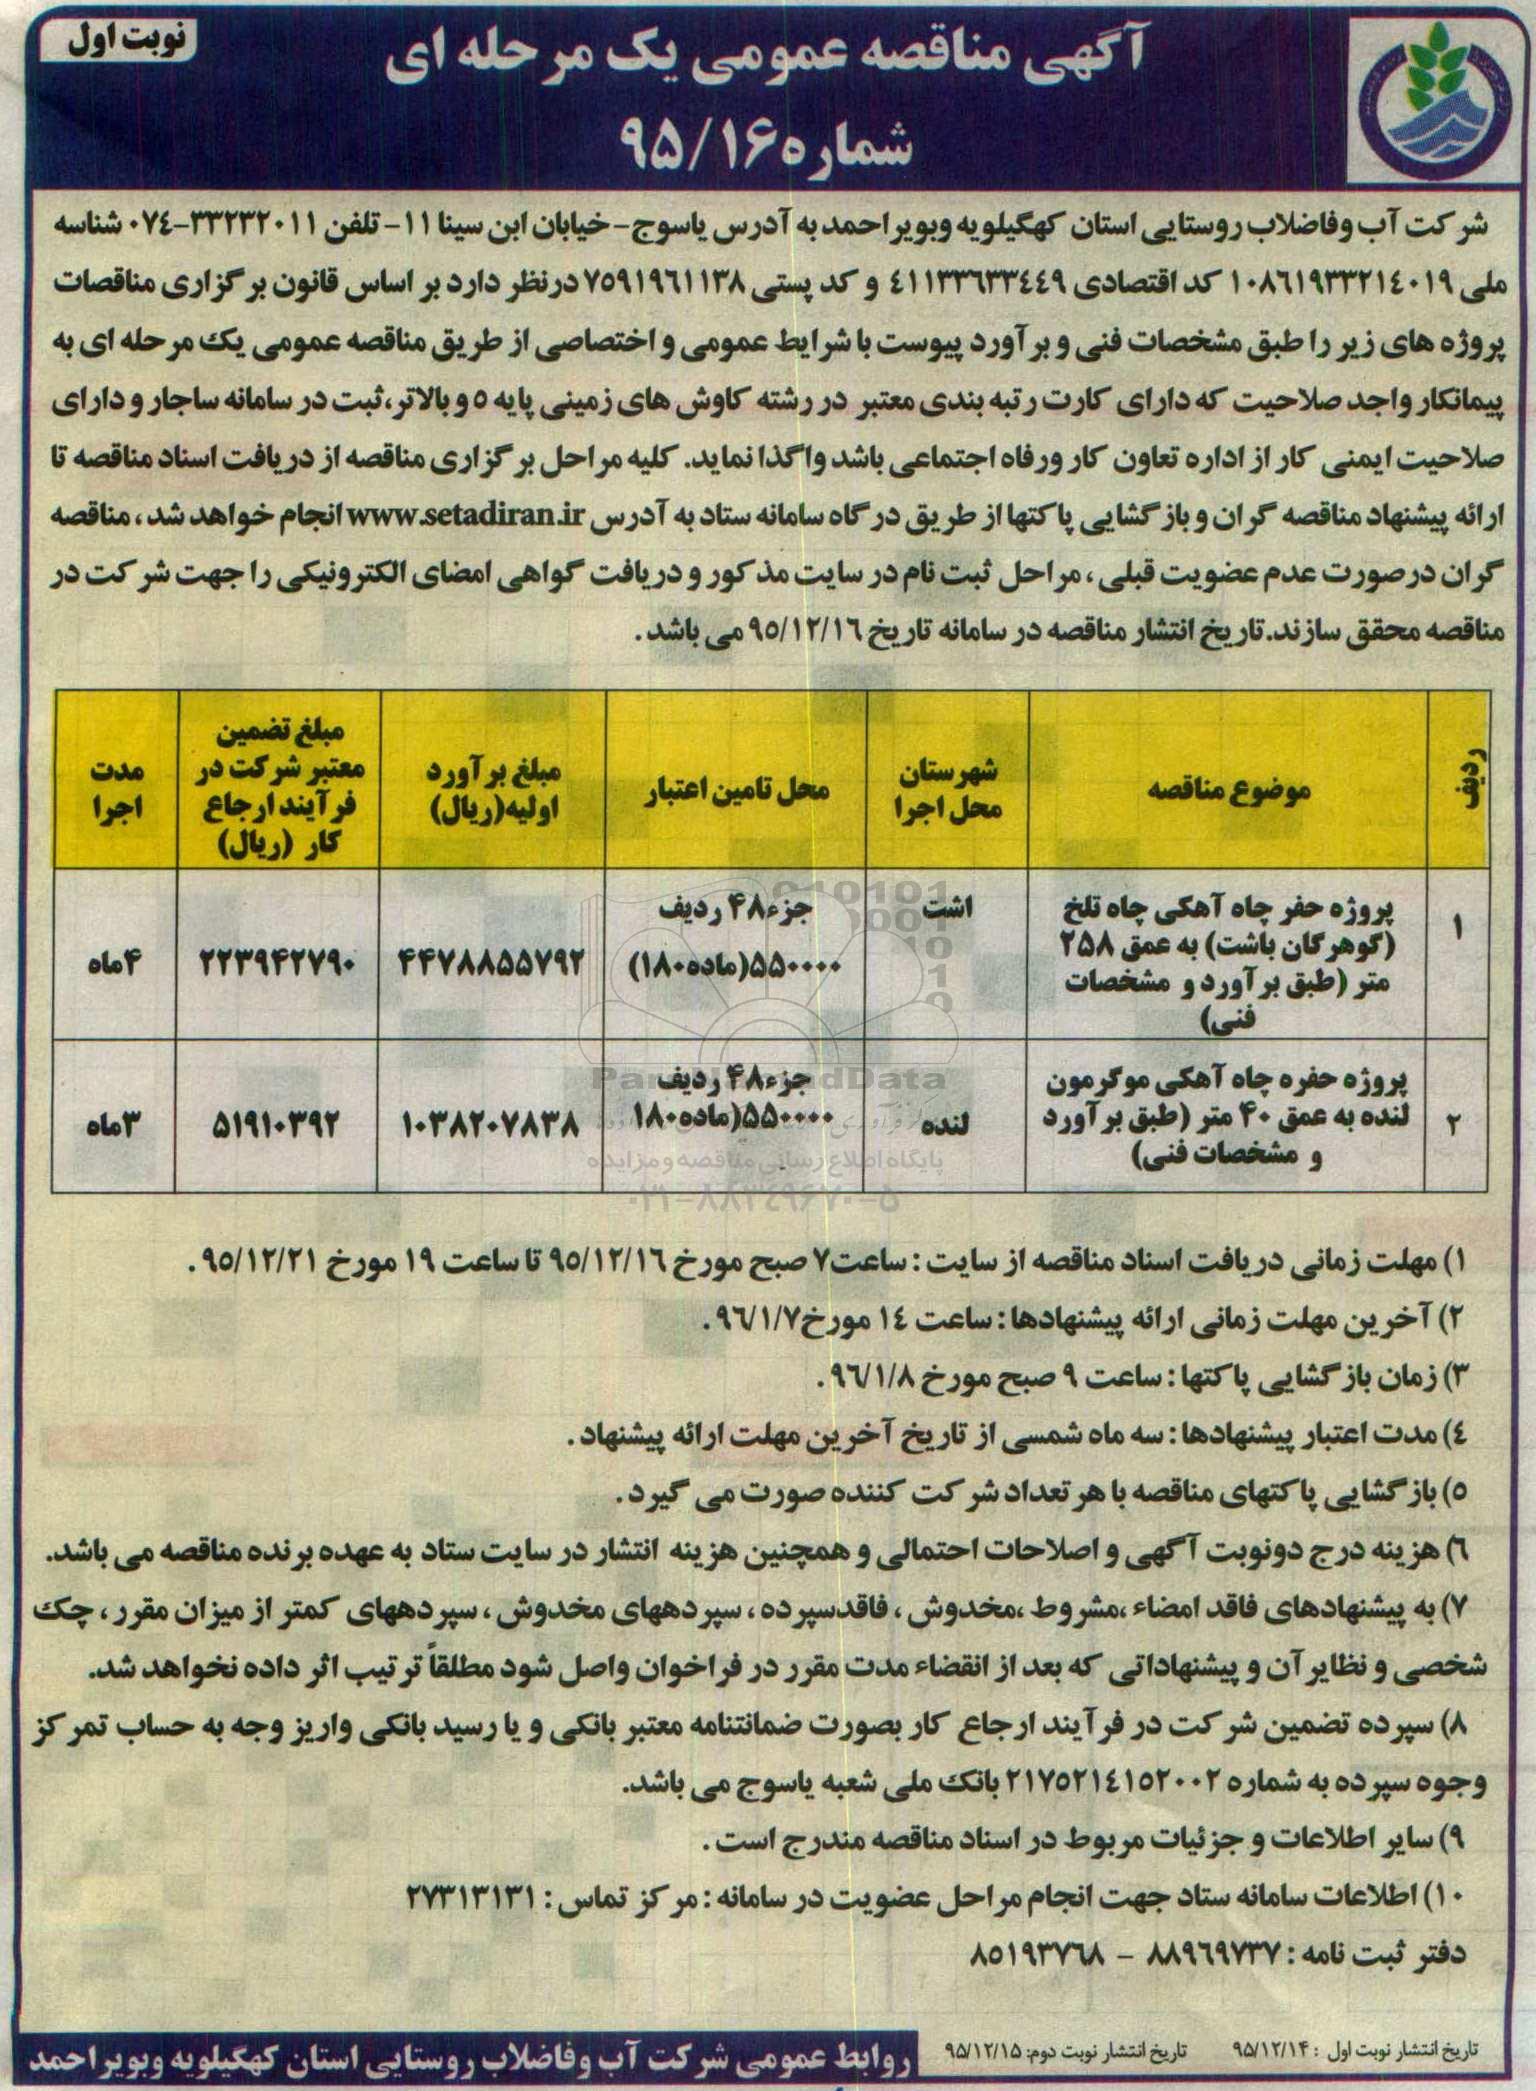 نوبت اول
آگهی مناقصه عمومی یک مرحله ای
شماره ۹۵/۱۶
شرکت آب وفاضلاب روستایی استان کهگیلویه وبویراحمد به آدرس یاسوج- خیابان ابن سینا ۱۱- تلفن ۳۳۲۳۲۰۱۱-۰۷٤ شناسه
ملی ۱۰۸٦۱۹۳۳۲۱٤۰۱۹ کد اقتصادی ٤۱۱۳۳٦۳۳٤٤۹ و کد پستی ۷٥۹۱۹٦۱۱۳۸ درنظر دارد بر اساس قانون برگزاری مناقصات
پروژه های زیر را طبق مشخصات فنی و برآورد پیوست با شرایط عمومی و اختصاصی از طریق مناقصه عمومی یک مرحله ای به
پیمانکار واجد صلاحیت که دارای کارت رتبه بندی معتبر در رشته کاوش های زمینی پایه ٥ و بالاتر،ثبت در سامانه ساجار و دارای
صلاحیت ایمنی کار از اداره تعاون کار ورفاه اجتماعی باشد واگذا نماید. کلیه مراحل برگزاری مناقصه از دریافت اسناد مناقصه تا
ارائه پیشنهاد مناقصه گران و بازگشایی پاکتها از طریق درگاه سامانه ستاد به آدرس www.setadiran.ir انجام خواهد شد ، مناقصه
گران درصورت عدم عضویت قبلی ، مراحل ثبت نام در سایت مذکور و دریافت گواهی امضای الکترونیکی را جهت شرکت در
مناقصه محقق سازند.تاریخ انتشار مناقصه در سامانه تاریخ ۹٥/۱۲/۱٦ می باشد .
ردیف
موضوع مناقصه
شهرستان
محل اجرا
محل تامین اعتبار
مبلغ برآورد
اولیه(ریال)
مبلغ تضمین
معتبر شرکت در
فرآیند ارجاع
کار (ریال)
مدت
اجرا
۱
پروژه حفر چاه آهکی چاه تلخ
(گوهرگان باشت) به عمق ۲۵۸
متر (طبق برآورد و مشخصات
فنی)
اشت
جزء۴۸ ردیف
۵۵۰۰۰۰(ماده۱۸۰)
۴۴۷۸۸۵۵۷۹۲
۲۲۳۹۴۲۷۹۰
۴ماه
۲
پروژه حفره چاه آهکی موگرمون
لنده به عمق ۴۰ متر (طبق برآورد
و مشخصات فنی)
لنده
جزء۴۸ ردیف
۵۵۰۰۰۰(ماده۱۸۰
۱۰۳۸۲۰۷۸۳۸
۵۱۹۱۰۳۹۲
۳ماه
پایگاه اطلاع رسانی مناقصه و مزایده
۰۲۱-۸۸۳۴۹۶۷۰-۵
۱) مهلت زمانی دریافت اسناد مناقصه از سایت : ساعت۷ صبح مورخ ۹٥/۱۲/۱٦ تا ساعت ۱۹ مورخ ۹٥/۱۲/۲۱ .
۲) آخرین مهلت زمانی ارائه پیشنهادها : ساعت ۱٤ مورخ۹٦/۱/۷ .
۳) زمان بازگشایی پاکتها : ساعت ۹ صبح مورخ ۹٦/۱/۸ .
٤) مدت اعتبار پیشنهادها : سه ماه شمسی از تاریخ آخرین مهلت ارائه پیشنهاد .
٥) بازگشایی پاکتهای مناقصه با هر تعداد شرکت کننده صورت می گیرد .
٦) هزینه درج دونوبت آگهی و اصلاحات احتمالی و همچنین هزینه انتشار در سایت ستاد به عهده برنده مناقصه می باشد.
۷) به پیشنهادهای فاقد امضاء ،مشروط ،مخدوش ، فاقدسپرده ، سپردههای مخدوش ، سپردههای کمتر از میزان مقرر ، چک
شخصی و نظایر آن و پیشنهاداتی که بعد از انقضاء مدت مقرر در فراخوان واصل شود مطلقاً ترتیب اثر داده نخواهد شد.
۸) سپرده تضمین شرکت در فرآیند ارجاع کار بصورت ضمانتنامه معتبر بانکی و یا رسید بانکی واریز وجه به حساب تمرکز
وجوه سپرده به شماره ۲۱۷٥۲۱٤۱٥۲۰۰۲ بانک ملی شعبه یاسوج می باشد.
۹) سایر اطلاعات و جزئیات مربوط در اسناد مناقصه مندرج است .
۱۰) اطلاعات سامانه ستاد جهت انجام مراحل عضویت در سامانه : مرکز تماس : ۲۷۳۱۳۱۳۱
دفتر ثبت نامه : ۸۸۹٦۹۷۳۷ - ۸٥۱۹۳۷٦۸
تاریخ انتشار نوبت اول : ۹۵/۱۲/۱۴ تاریخ انتشار نوبت دوم: ۹۵/۱۲/۱۵
روابط عمومی شرکت آب وفاضلاب روستایی استان کهگیلویه وبویراحمد